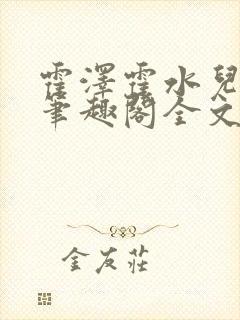 霍澤霍水兒
筆趣閣全文
金友莊